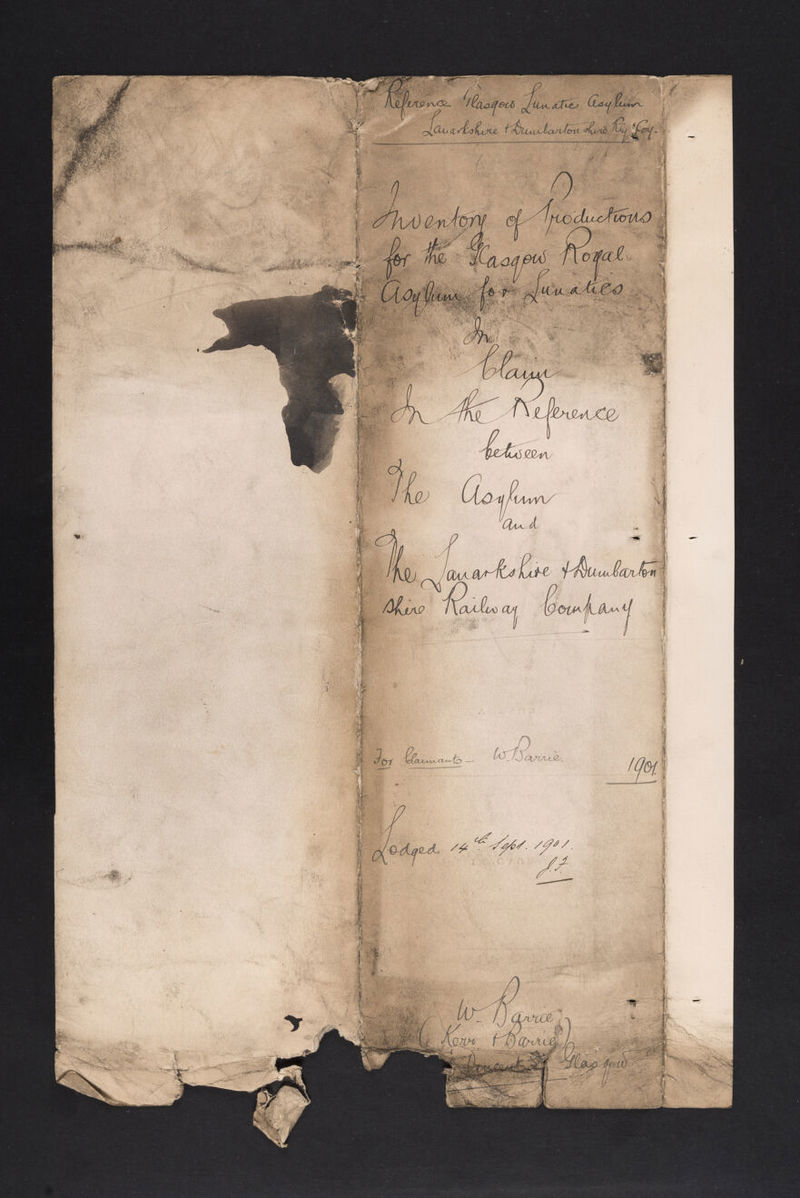 Reference Glasgow Lunatic Asylum
Lanarkshire & Dumbartonshire Ry Coy.
Inventory of Productions
for the Glasgow Royal
Asylum for Lunatics
In
Claim
In the Reference
between
The Asylum
and
The Lanarkshire & Dumbarton
shire Railway Company
For Claimants - W. Barrie. 1901
Lodged 14th Sept. 1901.
J.F.
W. Barrie
(Kerr & Barrie)
Glasgow